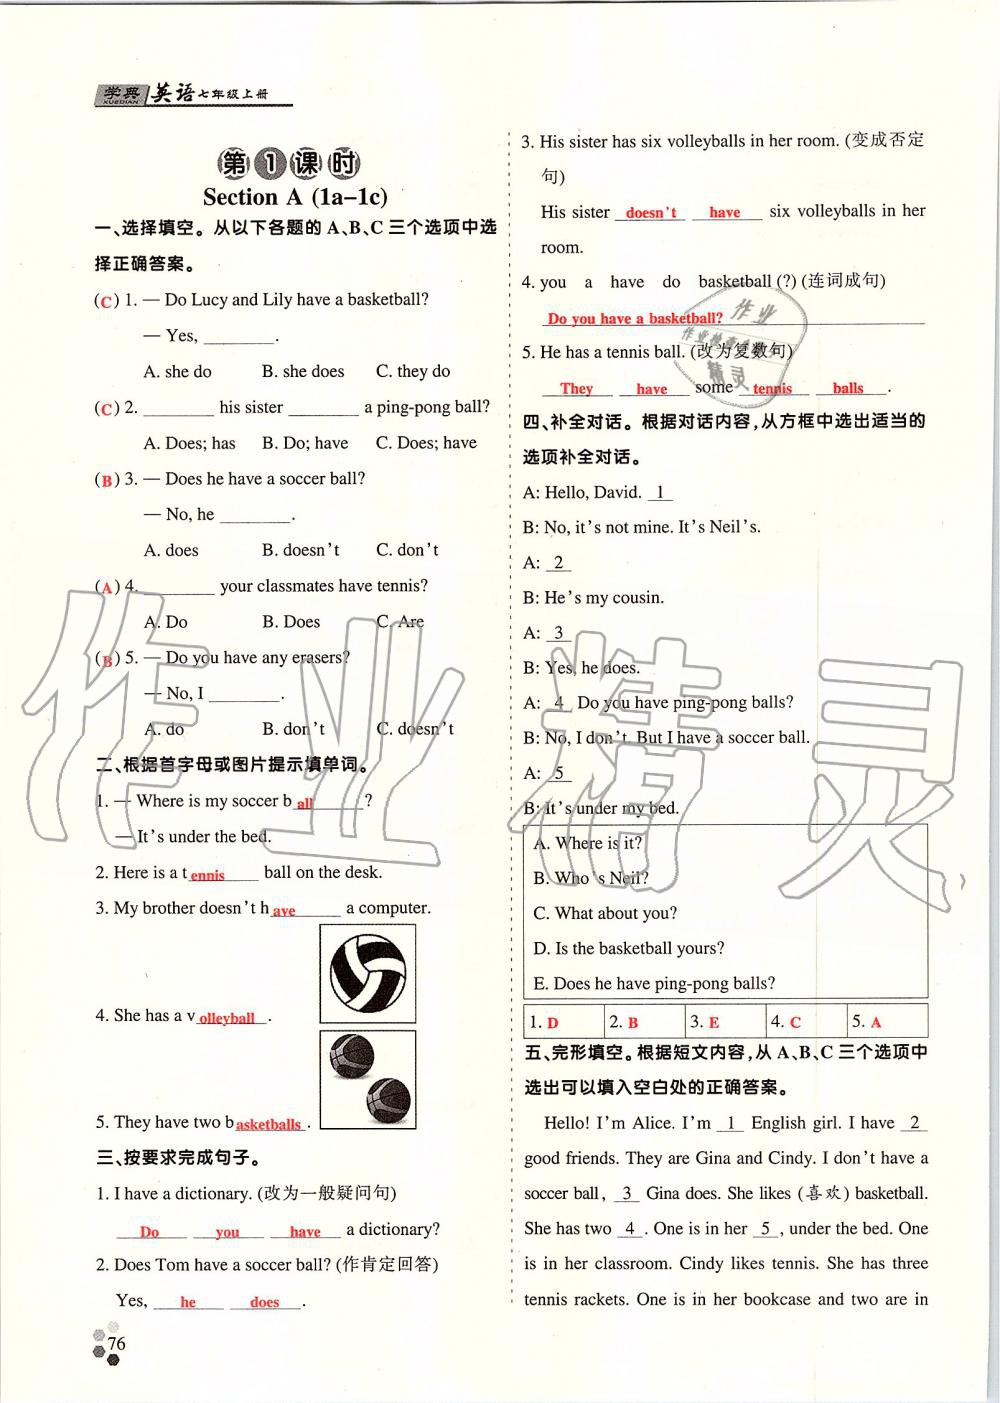 学典 XUEDIAN 英语七年级上册
第1课时
Section A (1a-1c)
一、选择填空。从以下各题的 A、B、C 三个选项中选
择正确答案。
(C) 1. — Do Lucy and Lily have a basketball?
— Yes, ________.
A. she do B. she does C. they do
(C) 2. ________ his sister ________ a ping-pong ball?
A. Does; has B. Do; have C. Does; have
(B) 3. — Does he have a soccer ball?
— No, he ________.
A. does B. doesn't C. don't
(A) 4. ________ your classmates have tennis?
A. Do B. Does C. Are
(B) 5. — Do you have any erasers?
— No, I ________.
A. do B. don't C. doesn't
二、根据首字母或图片提示填单词。
1. — Where is my soccer ball?
— It's under the bed.
2. Here is a tennis ball on the desk.
3. My brother doesn't have a computer.
4. She has a volleyball.
5. They have two basketballs.
三、按要求完成句子。
1. I have a dictionary. (改为一般疑问句)
Do you have a dictionary?
2. Does Tom have a soccer ball? (作肯定回答)
Yes, he does.
76
3. His sister has six volleyballs in her room. (变成否定
句)
His sister doesn't have six volleyballs in her
room.
4. you a have do basketball (?) (连词成句)
Do you have a basketball?
5. He has a tennis ball. (改为复数句)
They have some tennis balls.
四、补全对话。根据对话内容,从方框中选出适当的
选项补全对话。
A: Hello, David. 1
B: No, it's not mine. It's Neil's.
A: 2
B: He's my cousin.
A: 3
B: Yes, he does.
A: 4 Do you have ping-pong balls?
B: No, I don't. But I have a soccer ball.
A: 5
B: It's under my bed.
A. Where is it?
B. Who's Neil?
C. What about you?
D. Is the basketball yours?
E. Does he have ping-pong balls?
1. D 2. B 3. E 4. C 5. A
五、完形填空。根据短文内容,从 A、B、C 三个选项中
选出可以填入空白处的正确答案。
Hello! I'm Alice. I'm 1 English girl. I have 2
good friends. They are Gina and Cindy. I don't have a
soccer ball, 3 Gina does. She likes (喜欢) basketball.
She has two 4 . One is in her 5 , under the bed. One
is in her classroom. Cindy likes tennis. She has three
tennis rackets. One is in her bookcase and two are in
作业精灵
作业
精灵